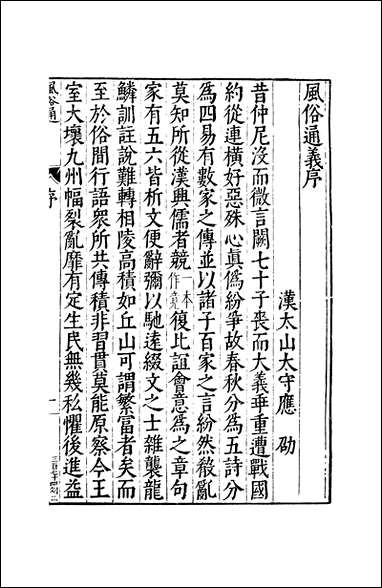 風俗通義序
漢太山太守應劭
昔仲尼没而微言闕七十子喪而大義乖重遭戰國
約從連横好惡殊心真僞紛爭故春秋分爲五詩分
爲四易有數家之傳並以諸子百家之言紛然殽亂
莫知所從漢興儒者競一本作竟復比誼會意爲之章句
家有五六皆析文便辭彌以馳逺綴文之士雜襲龍
鱗訓註說難轉相陵高積如丘山可謂繁富者矣而
至於俗間行語衆所共傳積非習貫莫能原察今王
室大壞九州幅裂亂靡有定生民無幾私懼後進益
風俗通
序
一